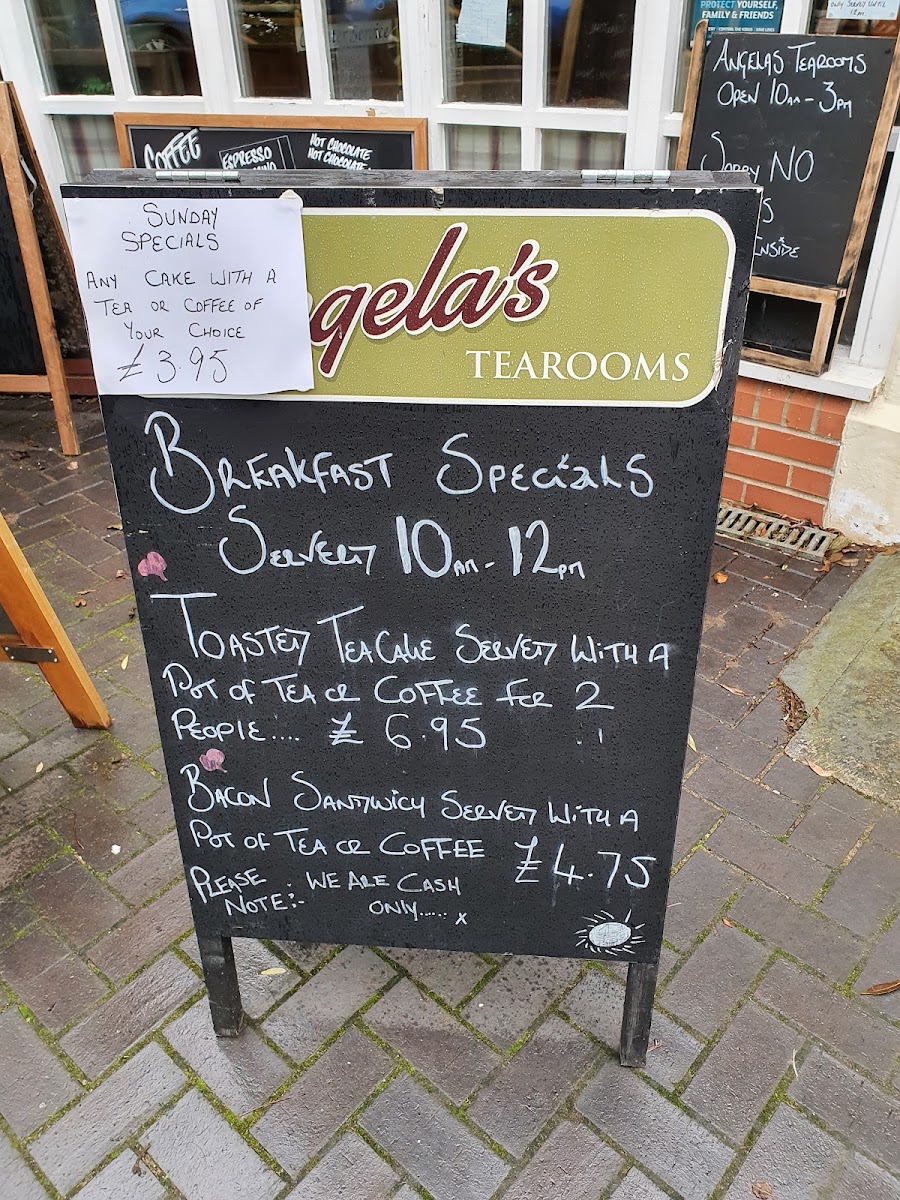 PROTECT YOURSELF,
FAMILY & FRIENDS
ONLY SERVED UNTIL
12PM
ANGELAS TEAROOMS
OPEN 10AM - 3PM
SORRY NO
INSIDE
COFFEE
ESPRESSO
HOT CHOCOLATE
HOT CHOCOLATE
SUNDAY
SPECIALS
ANY CAKE WITH A
TEA OR COFFEE OF
YOUR CHOICE
£3.95
ngela's
TEAROOMS
BREAKFAST SPECIALS
SERVED 10AM - 12PM
TOASTED TEACAKE SERVED WITH A
POT OF TEA OR COFFEE FOR 2
PEOPLE.... £ 6.95
BACON SANDWICH SERVED WITH A
POT OF TEA OR COFFEE £4.75
PLEASE NOTE:- WE ARE CASH
ONLY..... x